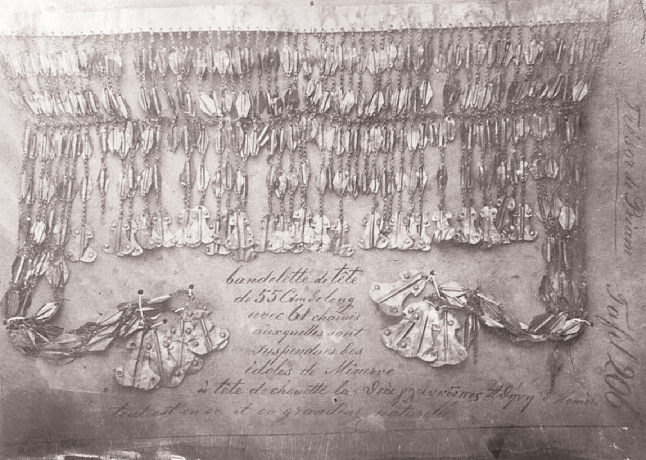 bandelette de tête
de 55 Cm de long
avec 61 chaines
auxquelles sont
suspendues des
idoles de Minerve
à tête de chouette la
tout est en or et en grandeur naturelle
Trésor de Priam Taf 206